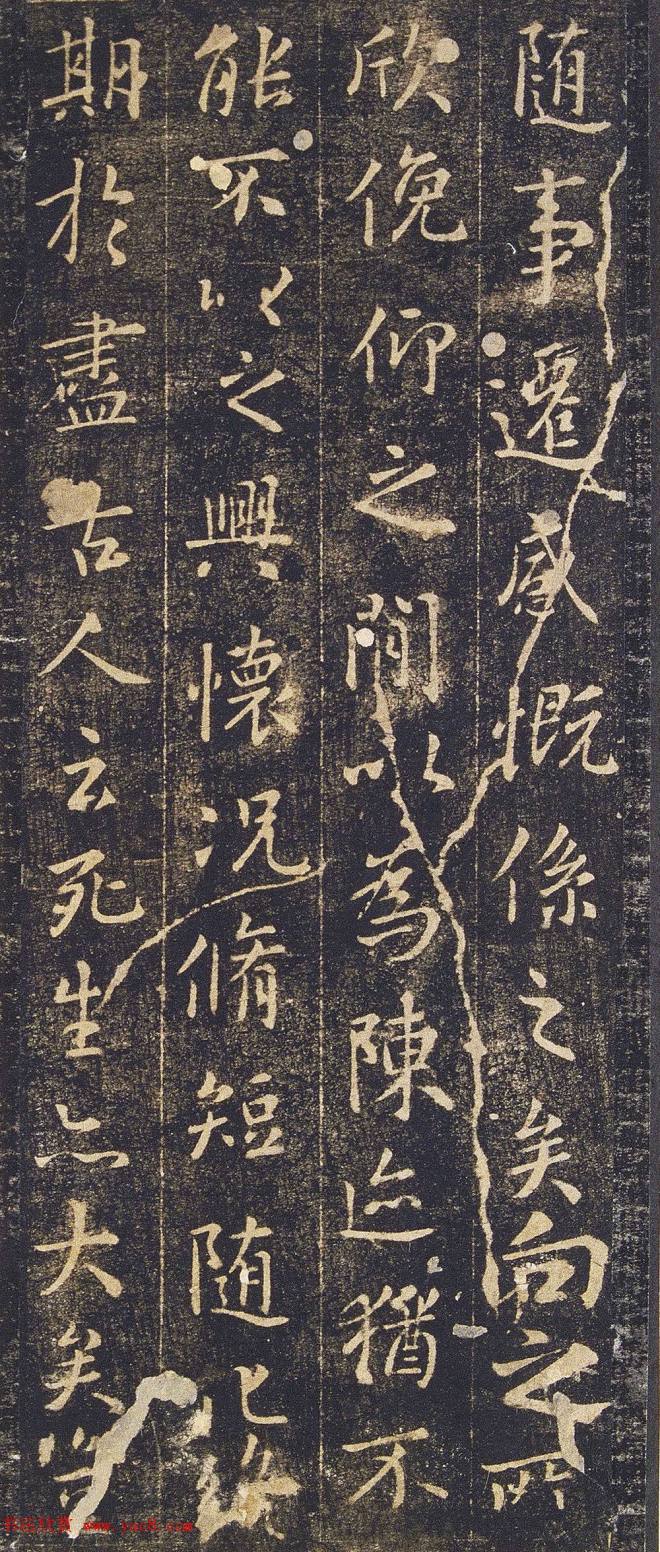 随事遷感慨係之矣向之所
欣俛仰之閒以為陳迹猶不
能不以之興懷況脩短随化終
期於盡古人云死生亦大矣豈
书法欣赏 www.yac8.com